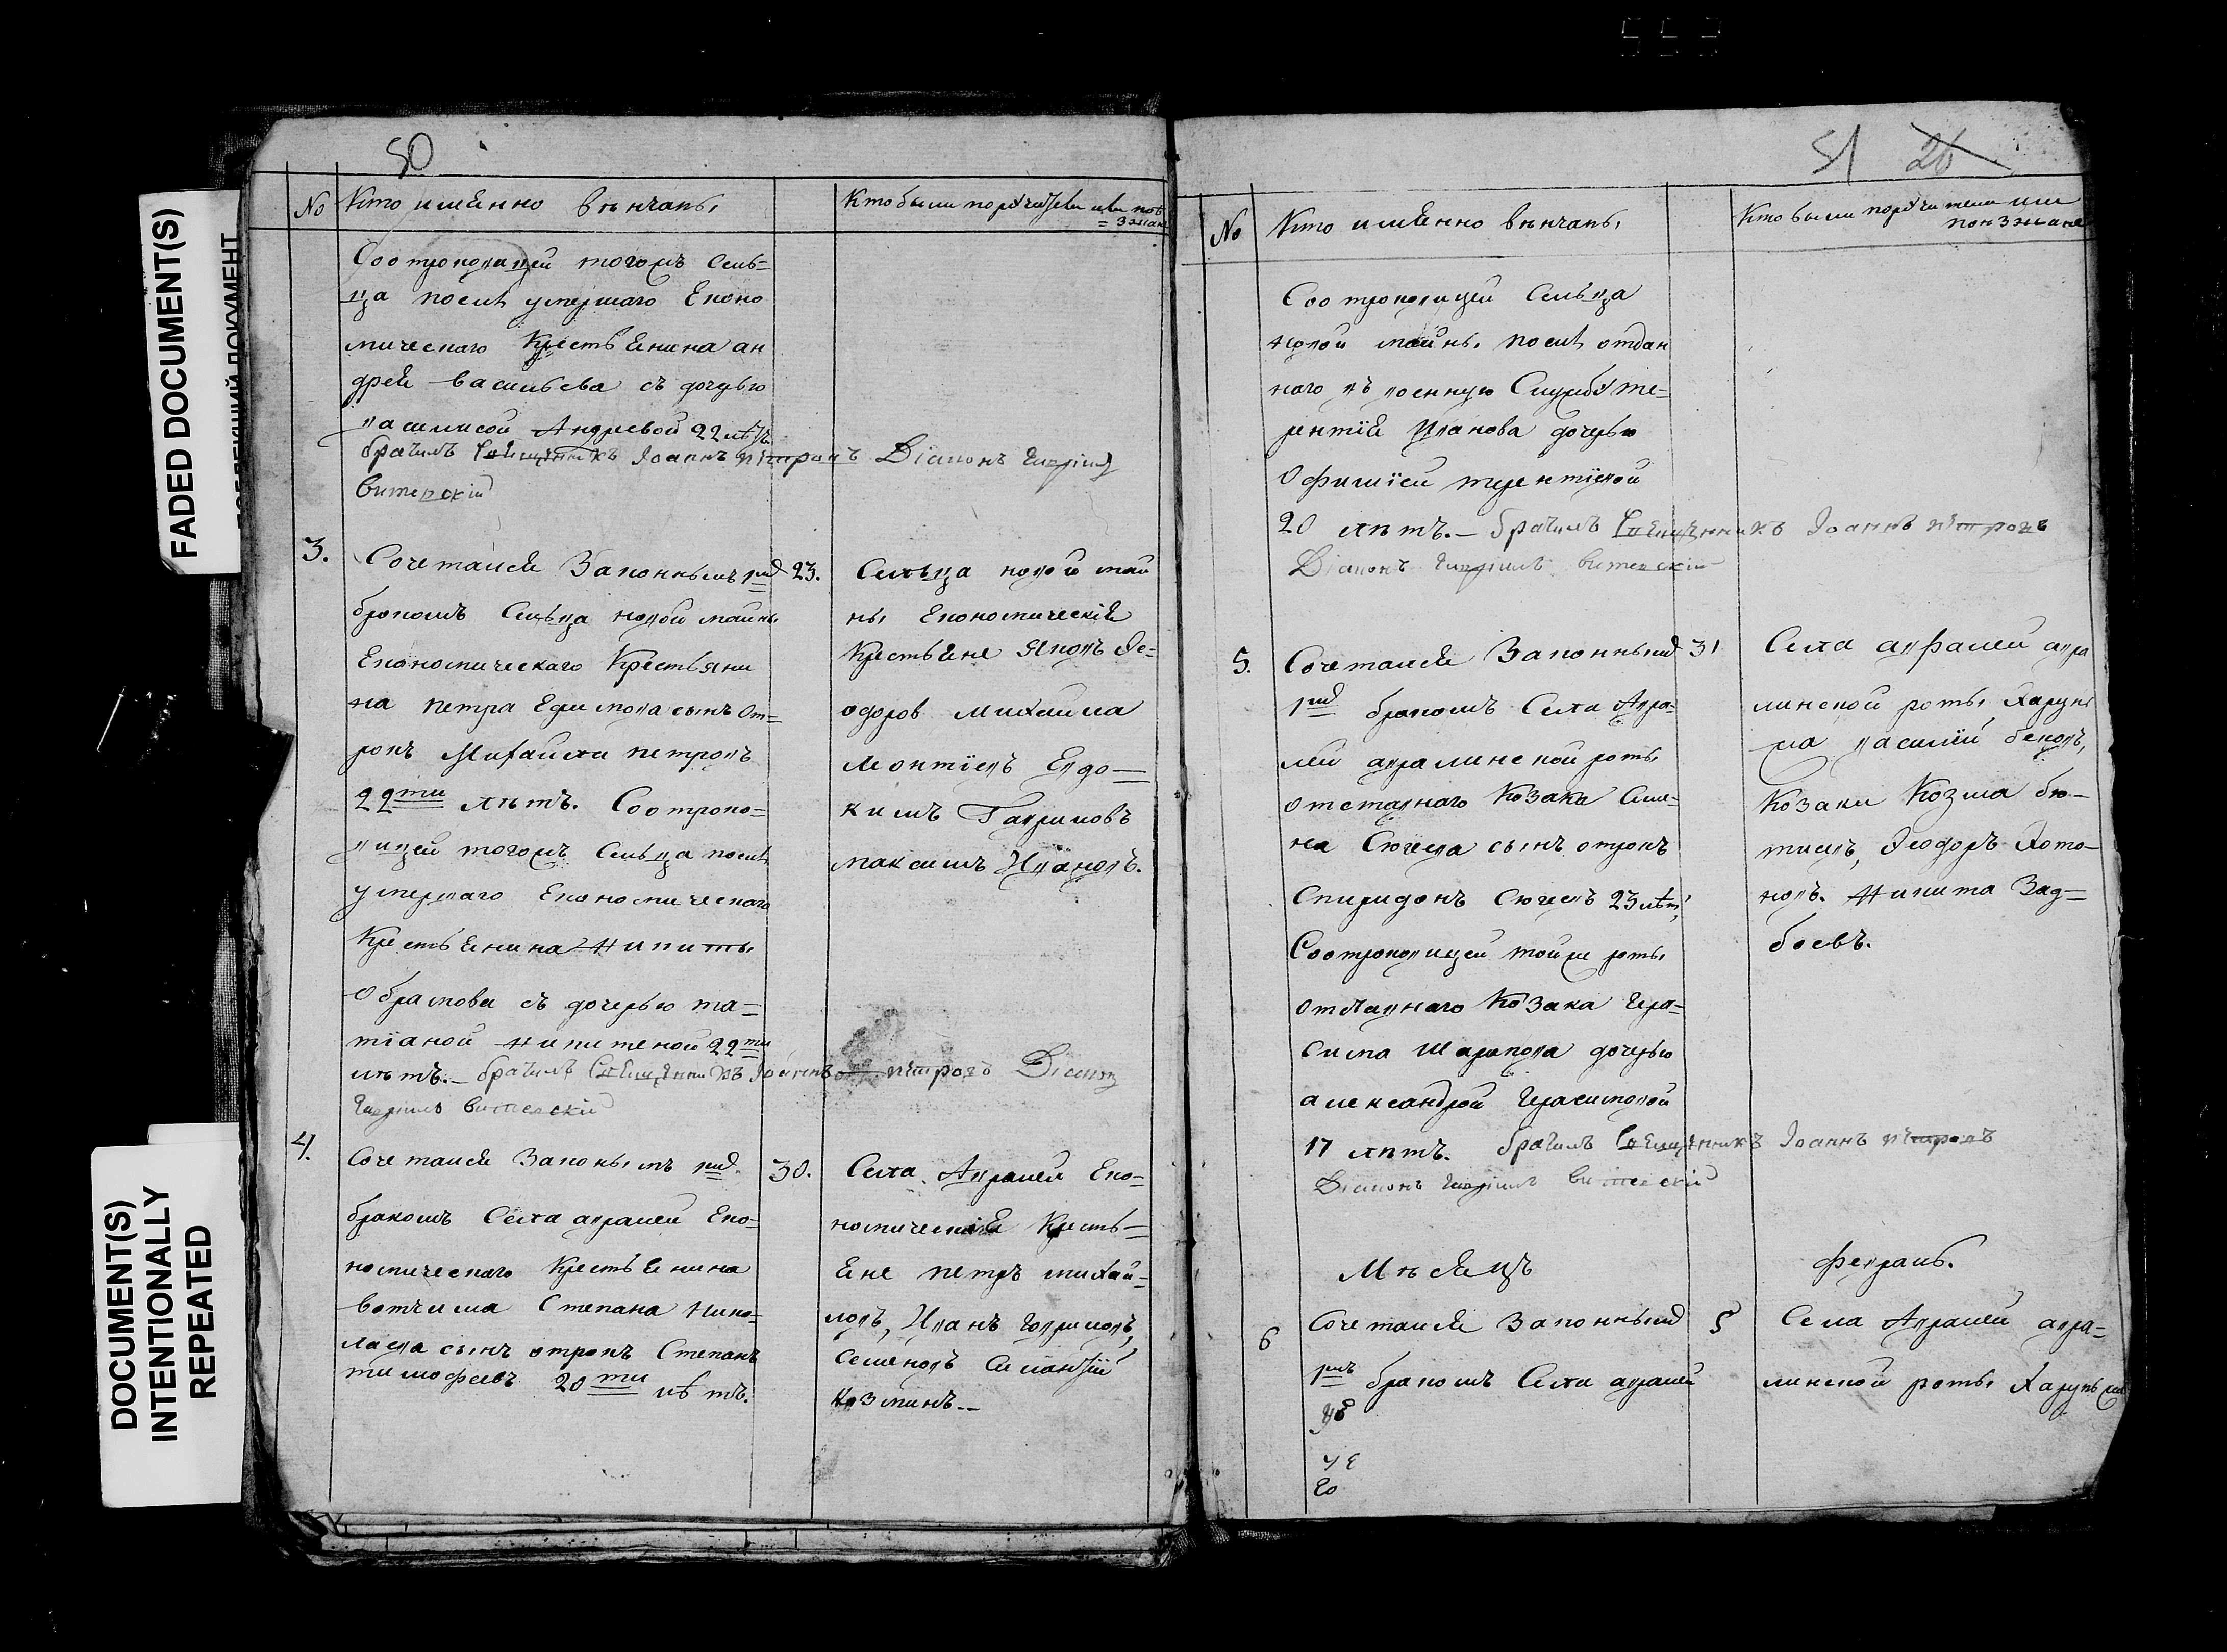 553
FADED DOCUMENT(S)
DOCUMENT(S)
INTENTIONALLY
REPEATED
50
No Кто имянно вѣнчаны
Кто были поручители или поѣ=
=зжан
Соотроковицей тогожъ Сель=
ца послѣ умершаго Еконо
мическаго Крестьенина ан
дрея васильева съ дочерью
василисой Андреевой 22 лѣтъ
брачилъ Священникъ Іоаннъ петровъ Діаконъ Гавріил
Витевскій
3. Сочетался Законнымъ 1мъ 23.
бракомъ Сельца новой майны
Економическаго Крестьяни
на петра Ефимова сынъ от=
рокъ Михайла петровъ
22ти лѣтъ. Соотроко=
вицей тогожъ Сельца послѣ
умершаго Економическаго
Крестьенина Никиты
Обрамова съ дочерью та=
тіаной Никитеной 22ти
лѣтъ. – брачилъ Священникъ Іоаннъ петровъ Діаконъ
Гавріилъ витевскій
Сельца новой май
ны Економическія
Крестьяне Яковъ Фе=
одоров михайла
леонтіевъ Евдо=
кимъ Гавриловъ
максимъ Ивановъ.
4. Сочетался Законымъ 1мъ 30.
бракомъ Села авралей Еко=
номическаго Крестьенина
вотчима Степана нико=
лаева сынъ отрокъ Степанъ
тимофеевъ 20ти лѣтъ.
Села Авралей Еко=
номическія Кресть=
Ене петръ михай=
ловъ, Иванъ Гавриловъ,
Семеновъ
козминъ. –
51 26
No Кто имянно вѣнчаны
Кто были поручители или
поѣзжане
Соотроковицей Сельца
новой майны послѣ отдан
наго въ военную Службу те=
рентія Иванова дочерью
Офимией терентіевой
20 лѣтъ. – брачилъ Священникъ Іоаннъ петровъ
Діаконъ Гавріилъ витевскій
5. Сочетался Законнымъ 31
1мъ бракомъ Села Авра=
лей авралинской роты
отставнаго Козака Семе=
на Сюгева сынъ отрокъ
Спиридонъ Сюгевъ 23 лѣтъ,
Соотроковицей тойже роты
отставнаго Козака Гера=
сима Шарапова дочерью
александрой Герасимовой
17 лѣтъ. брачилъ Священникъ Іоаннъ петровъ
Діаконъ Гавріилъ витевскій
Села авралей авра
линской роты Хорунж
ва василій бековъ,
Козаки Козма бю=
тяевъ, Феодоръ Хото=
новъ. Никита Зад=
боевъ.
Мѣсяцъ февраль.
6 Сочетался Законнымъ 5
1мъ бракомъ Села авралей
Села Авралей авра=
линской роты Харунжи